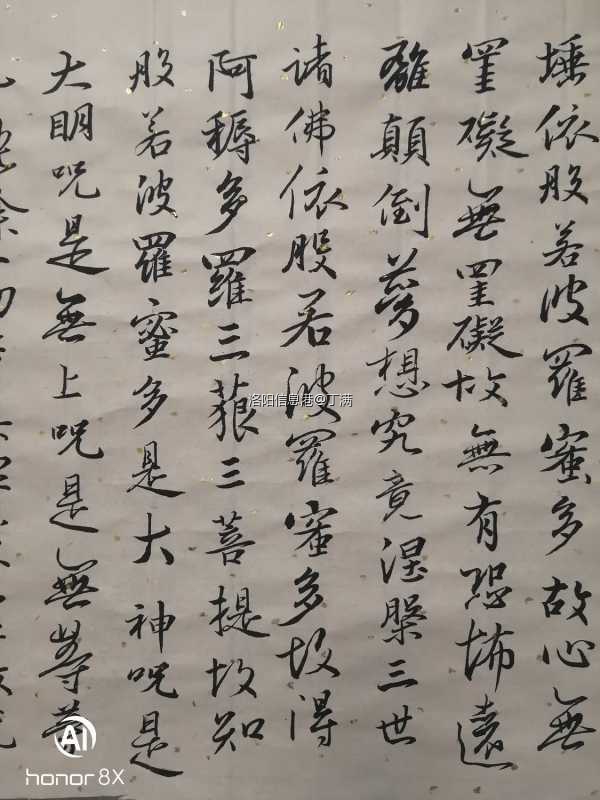 埵依般若波羅蜜多故心無
罣礙無罣礙故無有恐怖遠
離顛倒夢想究竟涅槃三世
諸佛依般若波羅蜜多故得
阿耨多羅三藐三菩提故知
般若波羅蜜多是大神呪是
大明呪是無上呪是無等等
洛阳信息港@丁满
AI
honor 8X